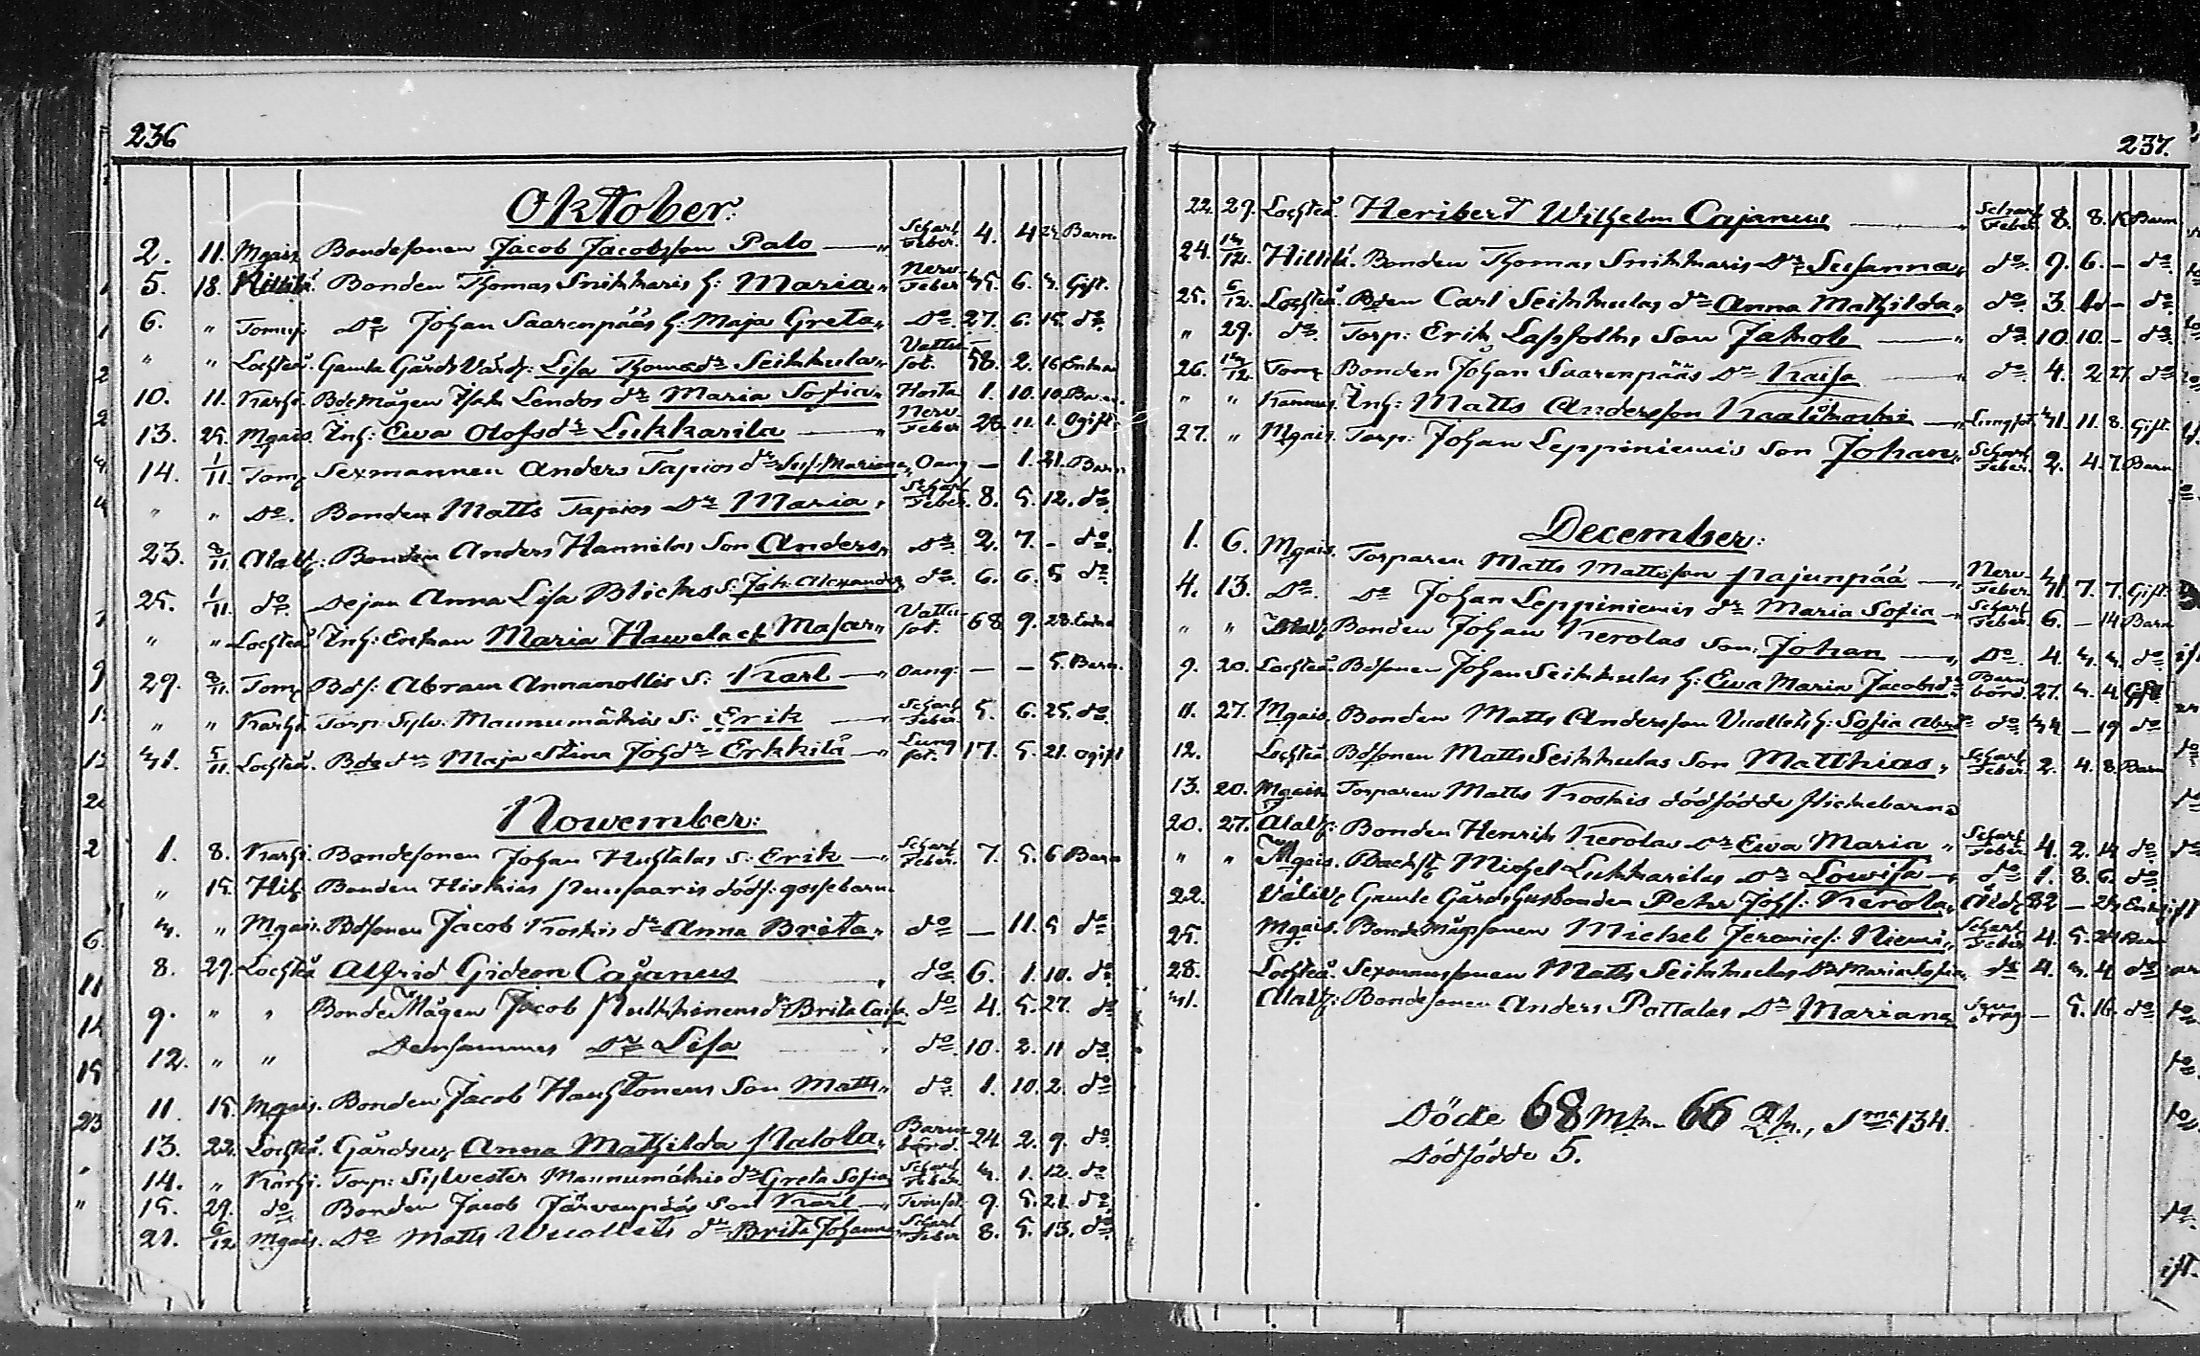 236
Oktober:
2. 11. Mgais. Bondesonen Jacob Jacobsson Palo — " Scharl. Feber. 4. 4. 22. Barn.
5. 18. Hillilä. Bonden Thomas Snikkaris h: Maria " Nerv Feber 35. 6. 3. Gift.
6. " Tomuj. Do Johan Saarenpääs h: Maja Greta " Do. 27. 6. 15. do.
" " Lochteå. Gamla Gårds Värd: Lisa Thomædr Seikkula " Vattusot. 58. 2. 16 Enka
10. 11. Karhi. Bde Mågen Isak Lendos dr Maria Sofia " Hosta 1. 10. 10. Barn
13. 25. Mgais. Inh: Ewa Olofsdr Lukkarila — " Nerv Feber 28. 11. 1. Ogift.
14. 1/11. Tomj Sexmannen Anders Tapios dr Sus: Mariana " Oang — 1. 21. Barn
" " Do. Bonden Matts Tapios Dr Maria " Scharl. Feber. 8. 5. 12. do.
23. 8/11. Alavj: Bonden Anders Hannilas Son Anders " Do. 2. 7. — do.
25. 1/11. do. Dejan Anna Lisa Blicks s: Joh: Alexander do. 6. 6. 5 do.
" " Lochteå Inh: Enkan Maria Hawela el: Masar " Vattusot. 68. 9. 28. Enka
29. 8/11. Tomj Bds: Abram Annanollis s: Karl — " Oang: — — 5. Barn.
" " Karhi. Torp: Sylv: Maunumäkis s: Erik — " Scharl. Feber. 5. 6. 25. do.
31. 5/11. Lochteå. Bds dr Maja Stina Johdr Erkkilä — " Lung sot. 17. 5. 21. Ogift
Nowember:
1. 8. Karhi. Bondesonen Johan Huhtalas s: Erik — " Scharl. Feber. 7. 5. 6 Barn
" 15. Hih: Bonden Hiskias Puusaaris dödf: gossebarn.
3. " Mgais. Bdsonen Jacob Koskis dr Anna Brita " do — 11. 5 do
8. 29. Lochteå Alfrid Gideon Cajanus " do. 6. 1. 10. do.
9. " " Bonde Mågen Jacob Pulkkinens dr Brita Caisa do 4. 5. 27. do
12. " " Densammes Dr Lisa " do. 10. 2. 11 do.
11. 15. Mgais. Bonden Jacob Hauhtonens Son Matts " do 1. 10. 2. do
13. 22. Lochteå. Gårdsuj Anna Mathilda Palola " Barnbörd. 24. 2. 9. do.
14. " Karhi. Torp: Sylvester Maunumäkis dr Greta Sofia Scharl. Feber. 3. 1. 12. do
15. 29. do. Bonden Jacob Järvenpääs Son Karl — " 9. 5. 21. do.
21. 6/12 Mgais. Do Matts Wuollets dr Brita Johanna Scharl Feber 8. 5. 13. do.
237.
22. 29. Lochteå. Heribert Wilhelm Cajanus — " Scharl. Feber. 8. 8. Barn
24. 13/12. Hillilä. Bonden Thomas Snikkaris Dr Susanna " do. 9. 6. — do.
25. 6/12. Lochteå. Bden Carl Seikkulas dr Anna Mathilda " do. 3. — do.
" 29. do. Torp: Erik Lassfolks Son Jakob — " do. 10. 10. — do.
26. 13/12. Tomj Bonden Johan Saarenpääs Dr Kaisa — " do. 4. 2. 27. do.
" " Kannus. Inh: Matts Andersson Kaalikoski — " Lungsot. 31. 11. 8. Gift.
27. " Mgais. Torp: Johan Leppiniemis Son Johan " Scharl. Feber. 2. 4. 7. Barn
December:
1. 6. Mgais. Torparen Matts Mattsson Pajunpää — " Nerv Feber. 31. 7. 7. Gift.
4. 13. Do. Do Johan Leppiniemis dr Maria Sofia — " Scharl. Feber. 6. — 14. Barn
" " Alavj Bonden Johan Kerolas Son: Johan — " Do. 4. 3. 3. do.
9. 20. Lochteå. Bdsonen Johan Seikkulas h: Ewa Maria Jacobsdr Barnbörd. 27. 3. 4. Gift
11. 27. Mgais. Bonden Matts Andersson Vuollets h: Sofia Abrdr do 33 — 19 do
12. Lochteå. Bdsonen Matts Seikkulas Son Matthias " Scharl Feber. 2. 4. 8. Barn
13. 20. Mgais. Torparen Matts Koskis dödfödde flickebarn
20. 27. Alavj: Bonden Henrik Kerolas Dr Ewa Maria " Scharl. Feber. 4. 2. 14 do.
" " Mgais. Backst Michel Lukkarilas Dr Lowisa — " do 1. 8. 6. do
22. Välivj Gamle Gårdshusbonden Petter Johs: Kerola " Åld. 82 — 24 Enk
25. Mgais. Bonde Mågsonen Michel Jeremies: Niemi " Scharl. Feber 4. 5. 24 Barn
28. Lochteå. Sexmanssonen Matts Seikkulas dr Maria Sofia " do 4. 3. 4 do
31. Alavj: Bondesonen Anders Pottalas Dr Mariana — 5. 16. do
Döde 68 Mk. 66 Qk., Sma 134.
Dödfödde 5.